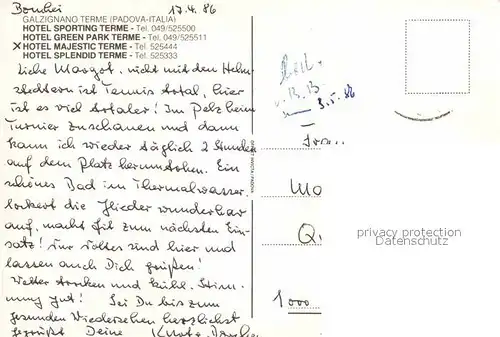 17.4.86
GALZIGNANO TERME (PADOVA-ITALIA)
HOTEL SPORTING TERME - Tel. 049/525500
HOTEL GREEN PARK TERME - Tel. 049/525511
X HOTEL MAJESTIC TERME - Tel. 525444
HOTEL SPLENDID TERME - Tel. 525333
Liebe Margot, nicht mit den
ist Tennis total, hier
ist es viel totaler! Im Pelz beim
Turnier zuschauen und dann
kann ich wieder täglich 2 Stunden
auf dem Platz herumtoben. Ein
schönes Bad im Thermalwasser
lockert die Glieder wunderbar
auf, macht fit zum nächsten Ein-
satz! sind hier und
lassen auch Dich grüßen!
Wetter trocken und kühl. Stim-
mung gut! Sei Du bis zum
gesunden Wiedersehen herzlichst
gegrüßt Deine
B.B.
3.5.86
Frau
Mo
Q
1000
privacy protection
Datenschutz